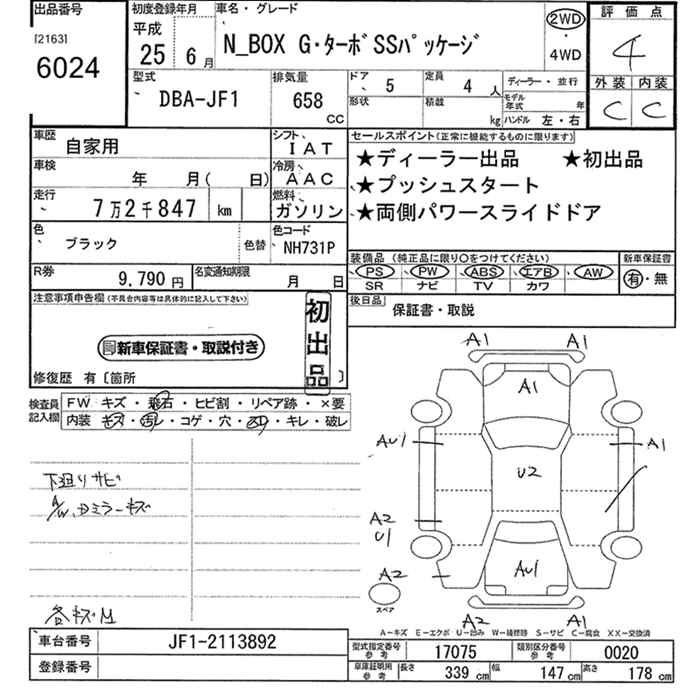 出品番号
[2163]
6024
初度登録年月
平成
25年 6月
車名・グレード
N_BOX G・ターボSSパッケージ
2WD
・
4WD
評価点
4
外装 内装
C C
型式
DBA-JF1
排気量
658
CC
ドア 5
定員 4 人
形状
積載 kg
ディーラー・並行
モデル年式 年
ハンドル 左・右
車歴 自家用
車検 年 月( 日)
走行 7万2千847 km
シフト IAT
冷房 AAC
燃料 ガソリン
色 ブラック
色替
色コード NH731P
R券 9.790円
名変通知期限 月 日
セールスポイント(正常に機能するものに限ります)
★ディーラー出品 ★初出品
★プッシュスタート
★両側パワースライドドア
装備品(純正品に限り〇をつけてください)
PS PW ABS エアB AW
SR ナビ TV カワ
新車保証書
有・無
後日品
保証書・取説
注意事項申告欄(不具合内容等は具体的に記入して下さい)
初出品
新車保証書・取説付き
修復歴 有〔箇所 〕
検査員記入欄
FW キズ・飛石・ヒビ割・リペア跡・×要
内装 キズ・汚れ・コゲ・穴・スレ・キレ・破レ
下廻りサビ
A/W、ドミラーキズ
各キズ M
A1 A1
A1
AU1
A1
U2
A2
U1
A2
AU1
スペア
A2 A1
A-キズ E-エクボ U-凹み W-補修跡 S-サビ C-腐食 XX-交換済
車台番号 JF1-2113892
登録番号
型式指定番号参考 17075
類別区分番号参考 0020
車庫証明用参考 長さ 339 cm 幅 147 cm 高さ 178 cm